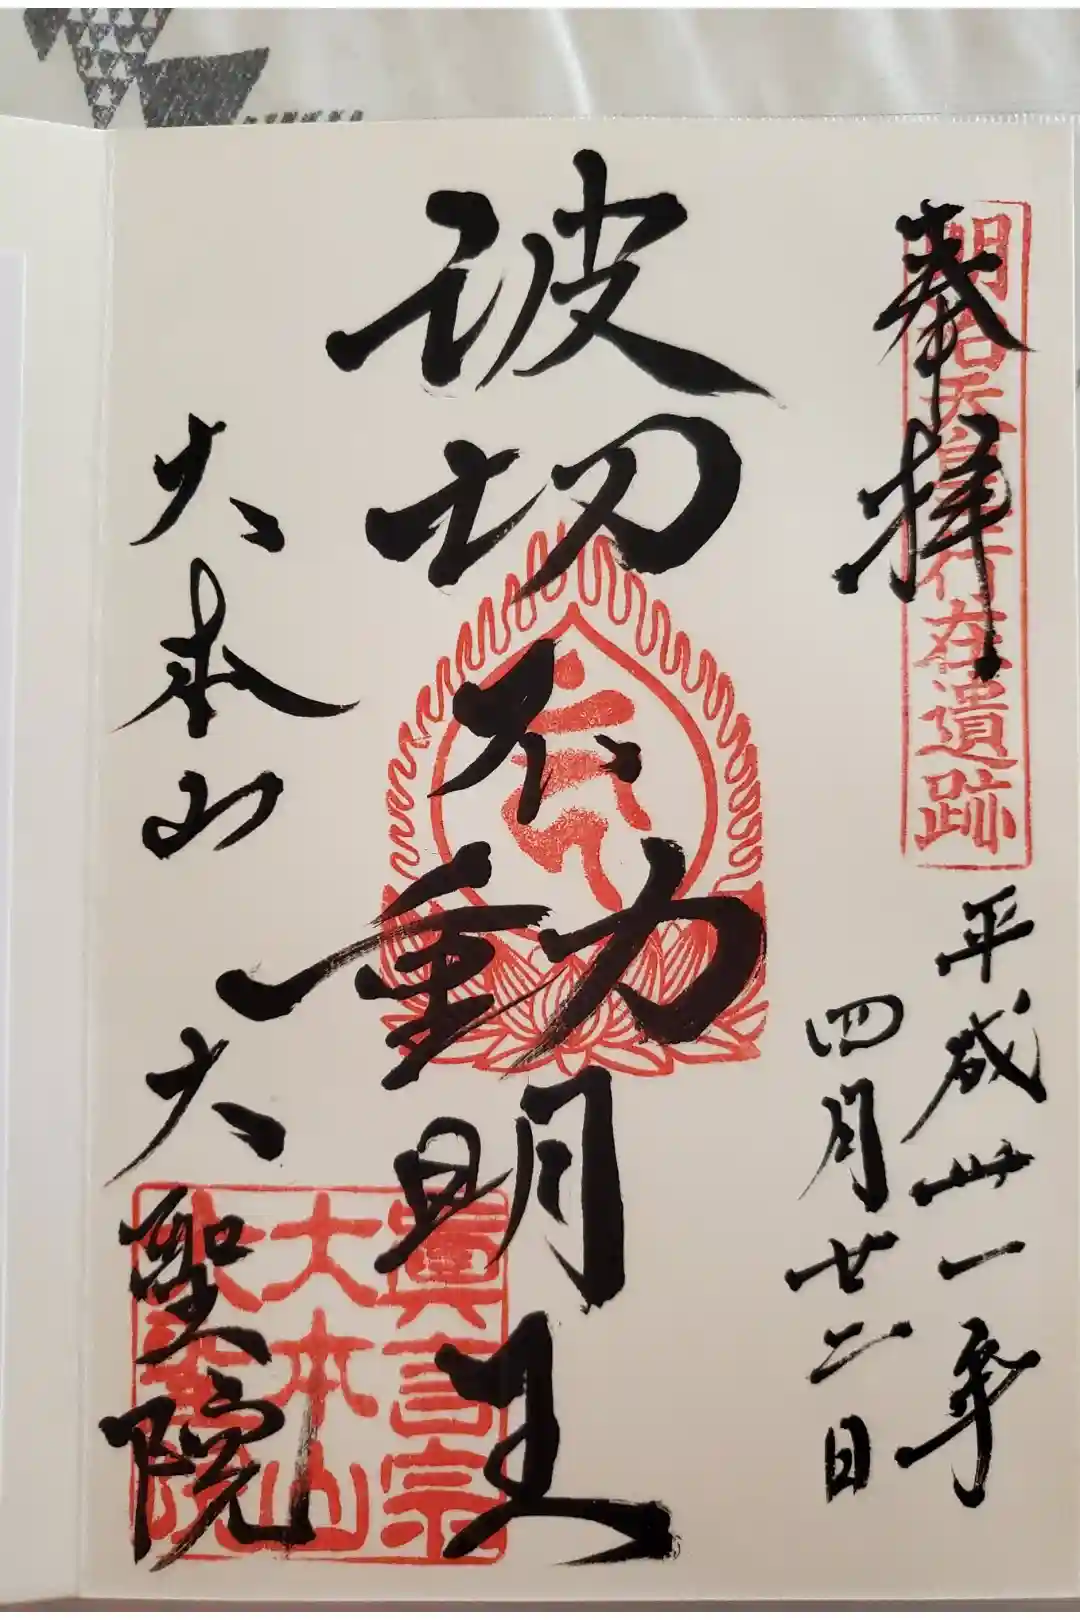 奉拝
明治天皇行在遺跡
平成卅一年
四月廿二日
波切不動明王
大本山 大聖院
眞言宗
大本山
大聖院